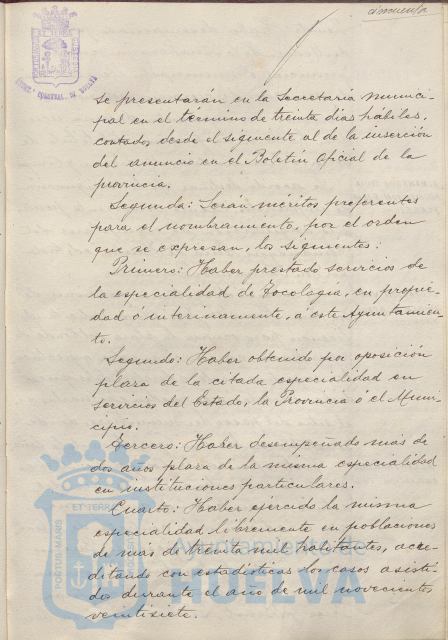 cincuenta
se presentarán en la Secretaría munici-
pal en el término de treinta días hábiles,
contados desde el siguiente al de la inserción
del anuncio en el Boletín Oficial de la
provincia.
Segunda: Serán méritos preferentes
para el nombramiento, por el orden
que se expresan, los siguientes:
Primero: Haber prestado servicios de
la especialidad de Tocología, en propie-
dad ó interinamente, a este Ayuntamien-
to.
Segundo: Haber obtenido por oposición
plaza de la citada especialidad en
servicios del Estado, la Provincia ó el Muni-
cipio.
Tercero: Haber desempeñado más de
dos años plaza de la misma especialidad
en instituciones particulares.
Cuarto: Haber ejercido la misma
especialidad libremente en poblaciones
de más de treinta mil habitantes, acre-
ditando con estadísticas los casos asisti-
dos durante el año de mil novecientos
veintisiete.
PORTUS MARIS
ET TERRAE
Ayuntamiento de
HUELVA